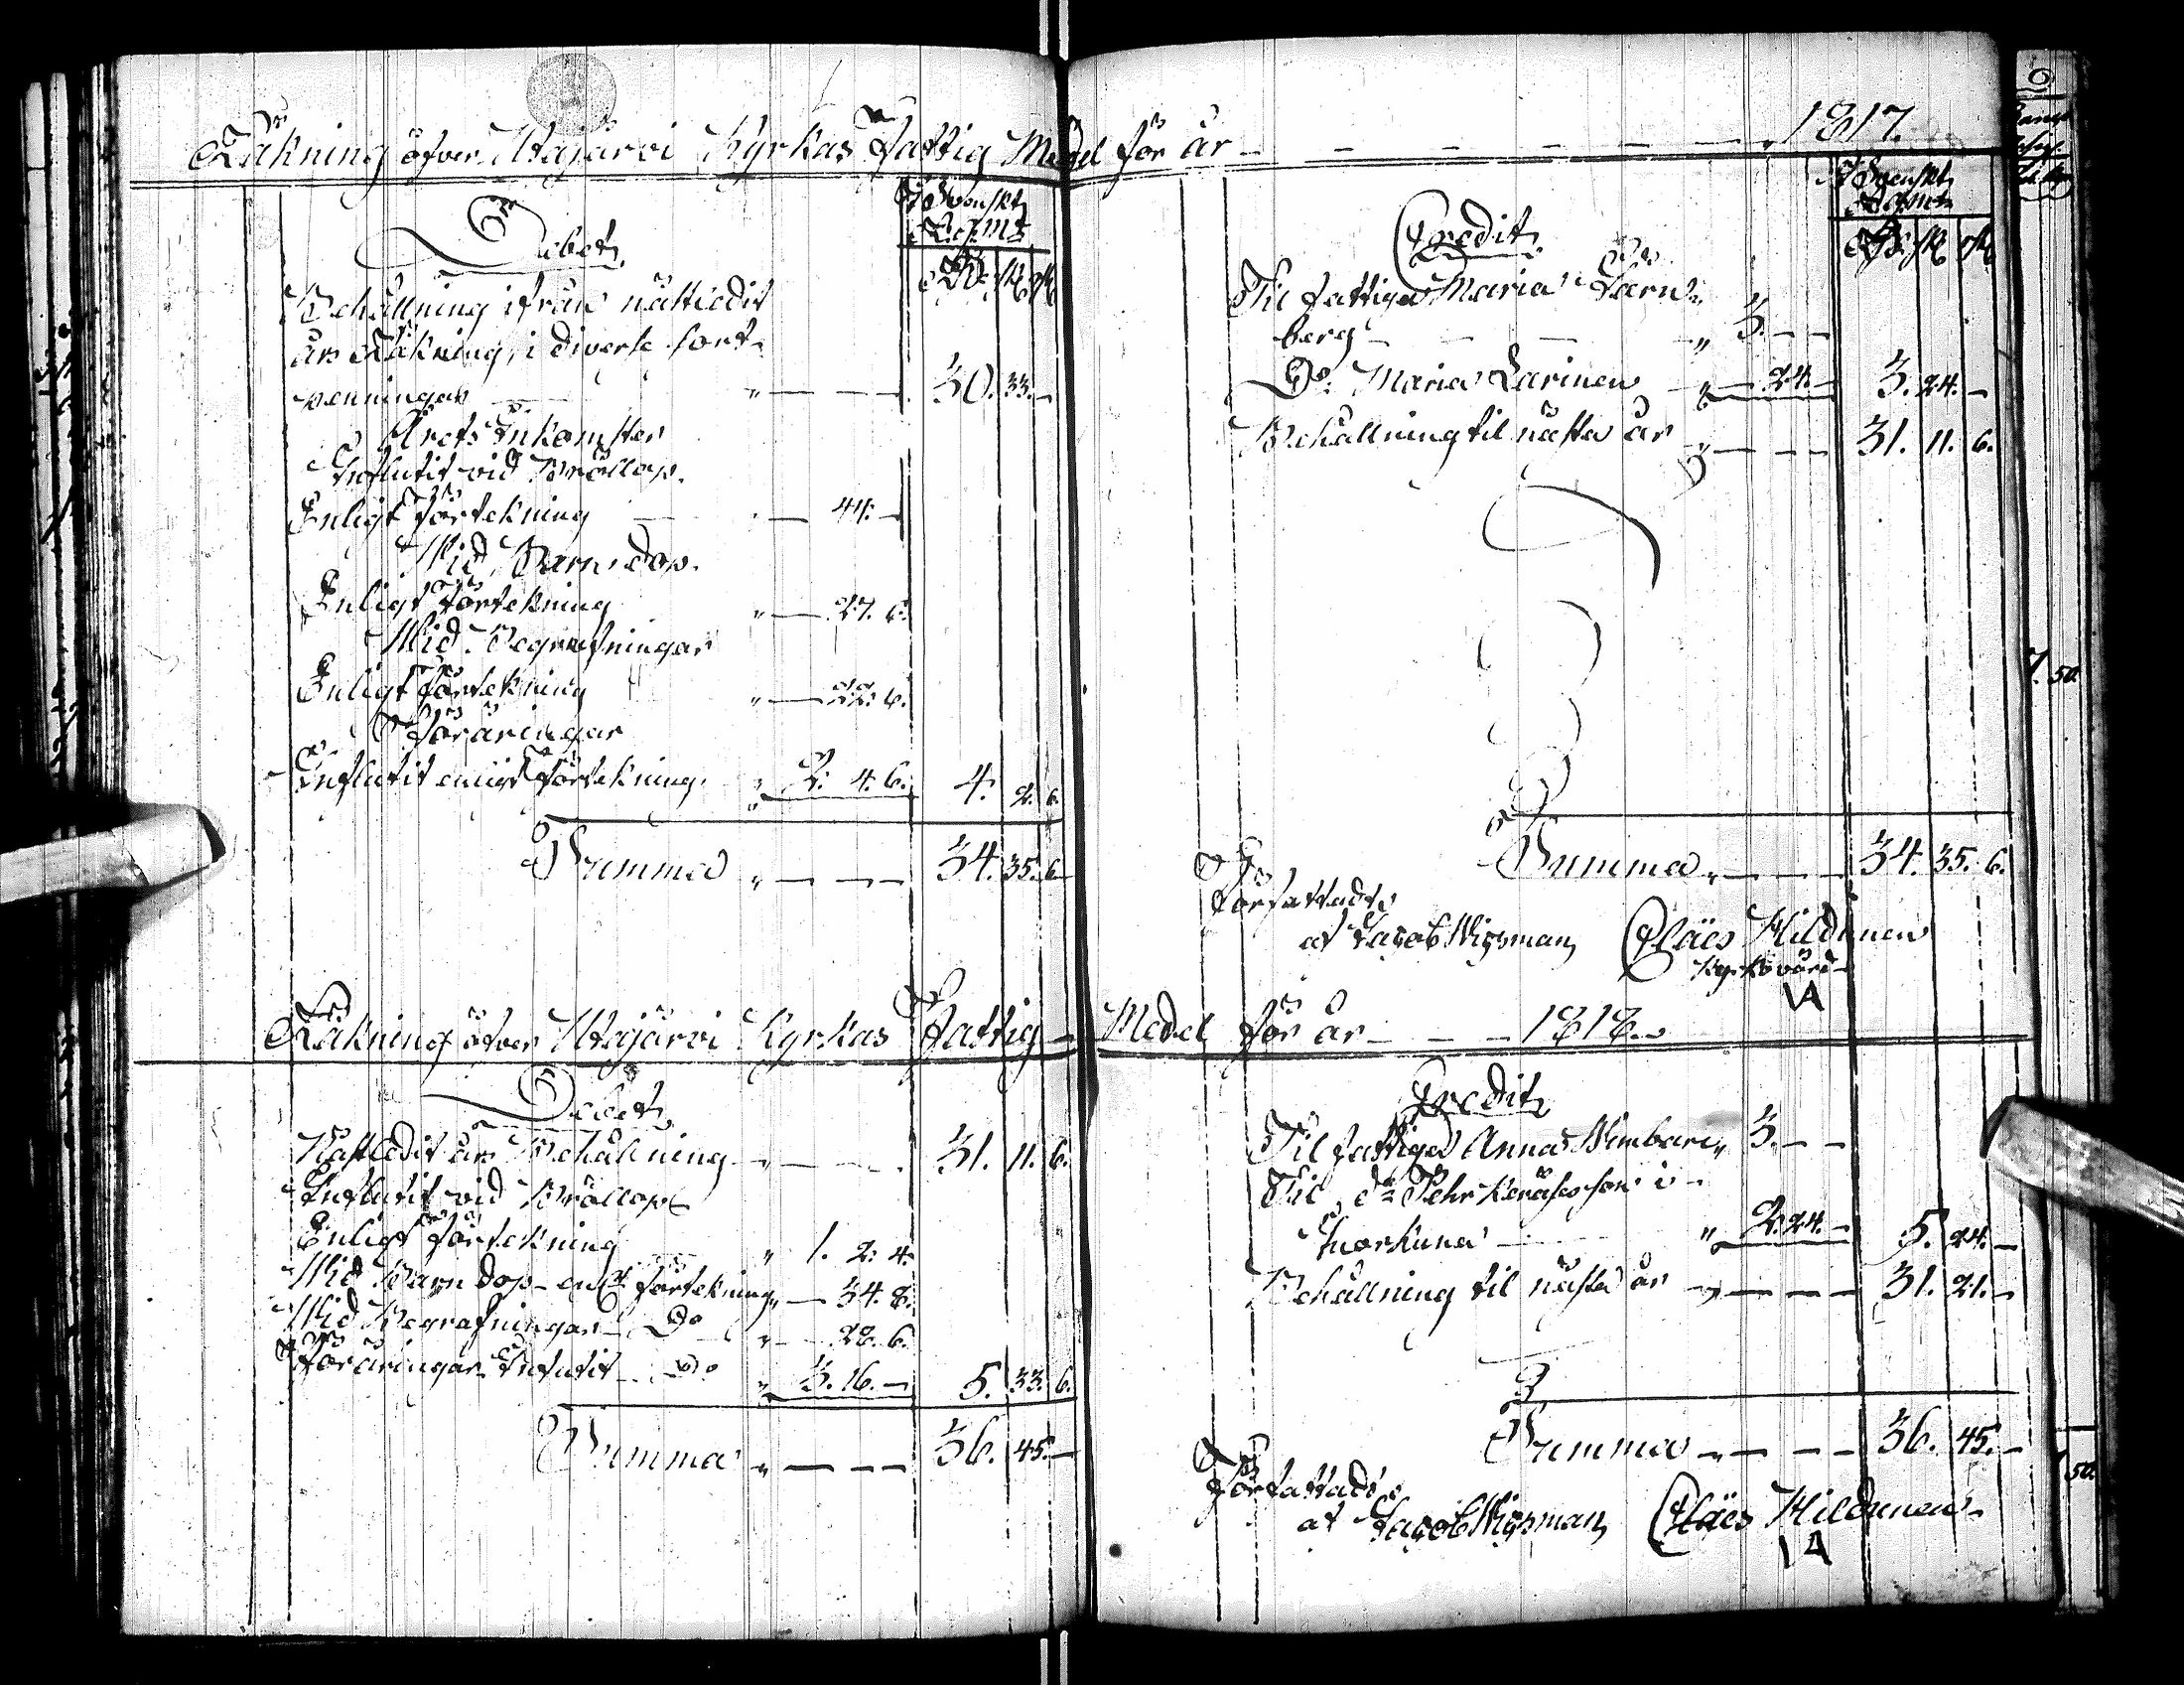 Räkning öfver Utajärvi Kyrkas Fattig Medel för år - - - - - 1817.
Debet
Svenskt
R.g.mt
Rd. sk. rst.
Behållning ifrån nästledit
års Räkning, i diverse sort-
penningar " - - - 30. 33. -
Årets Inkomster
Influtit vid Bröllop.
Enligt förtekning - - 44. -
Vid Barndop.
Enligt förtekning " - 27. 6.
Vid Begrafningar
Enligt förtekning " - 22. 6.
Föräringar
Influtit enligt förtekning " 2. 4. 6. 4. 2. 6.
Summa " - - - 34. 35. 6.
Credit
Svenskt
Rd. sk. rst.
Til fattiga Maria
berg - - - " 3. - -
Do Maria Larinen " - 24. - 3. 24. -
Behållning til nästa år " - - - 31. 11. 6.
Summa " - - - 34. 35. 6.
Författadt
af Jacob Wigman, Claës Hildunen
Kyrkovärd
Räkning öfver Utajärvi Kyrkas Fattig - Medel för år - - - 1818.
Debet
Nästledit års Behållning " - - - 31. 11. 6.
Influtit vid Bröllop
Enligt förtekning " 1. 2. 4.
Vid Barndop - enl. förtekning " - 34. 8.
Vid Begrafningar - Do " - 28. 6.
Föräringar Influtit - Do " 3. 16. - 5. 33. 6.
Summa " - - - 36. 45. -
Credit
Til fattiga Anna Vimbari " 3. - -
Til do Pehr i -
Juorkuna - " 2. 24. - 5. 24. -
Behållning til nästa år - " - - - 31. 21. -
Summa " - - - 36. 45. -
Författadt
af Jacob Wigman, Claës Hildunen